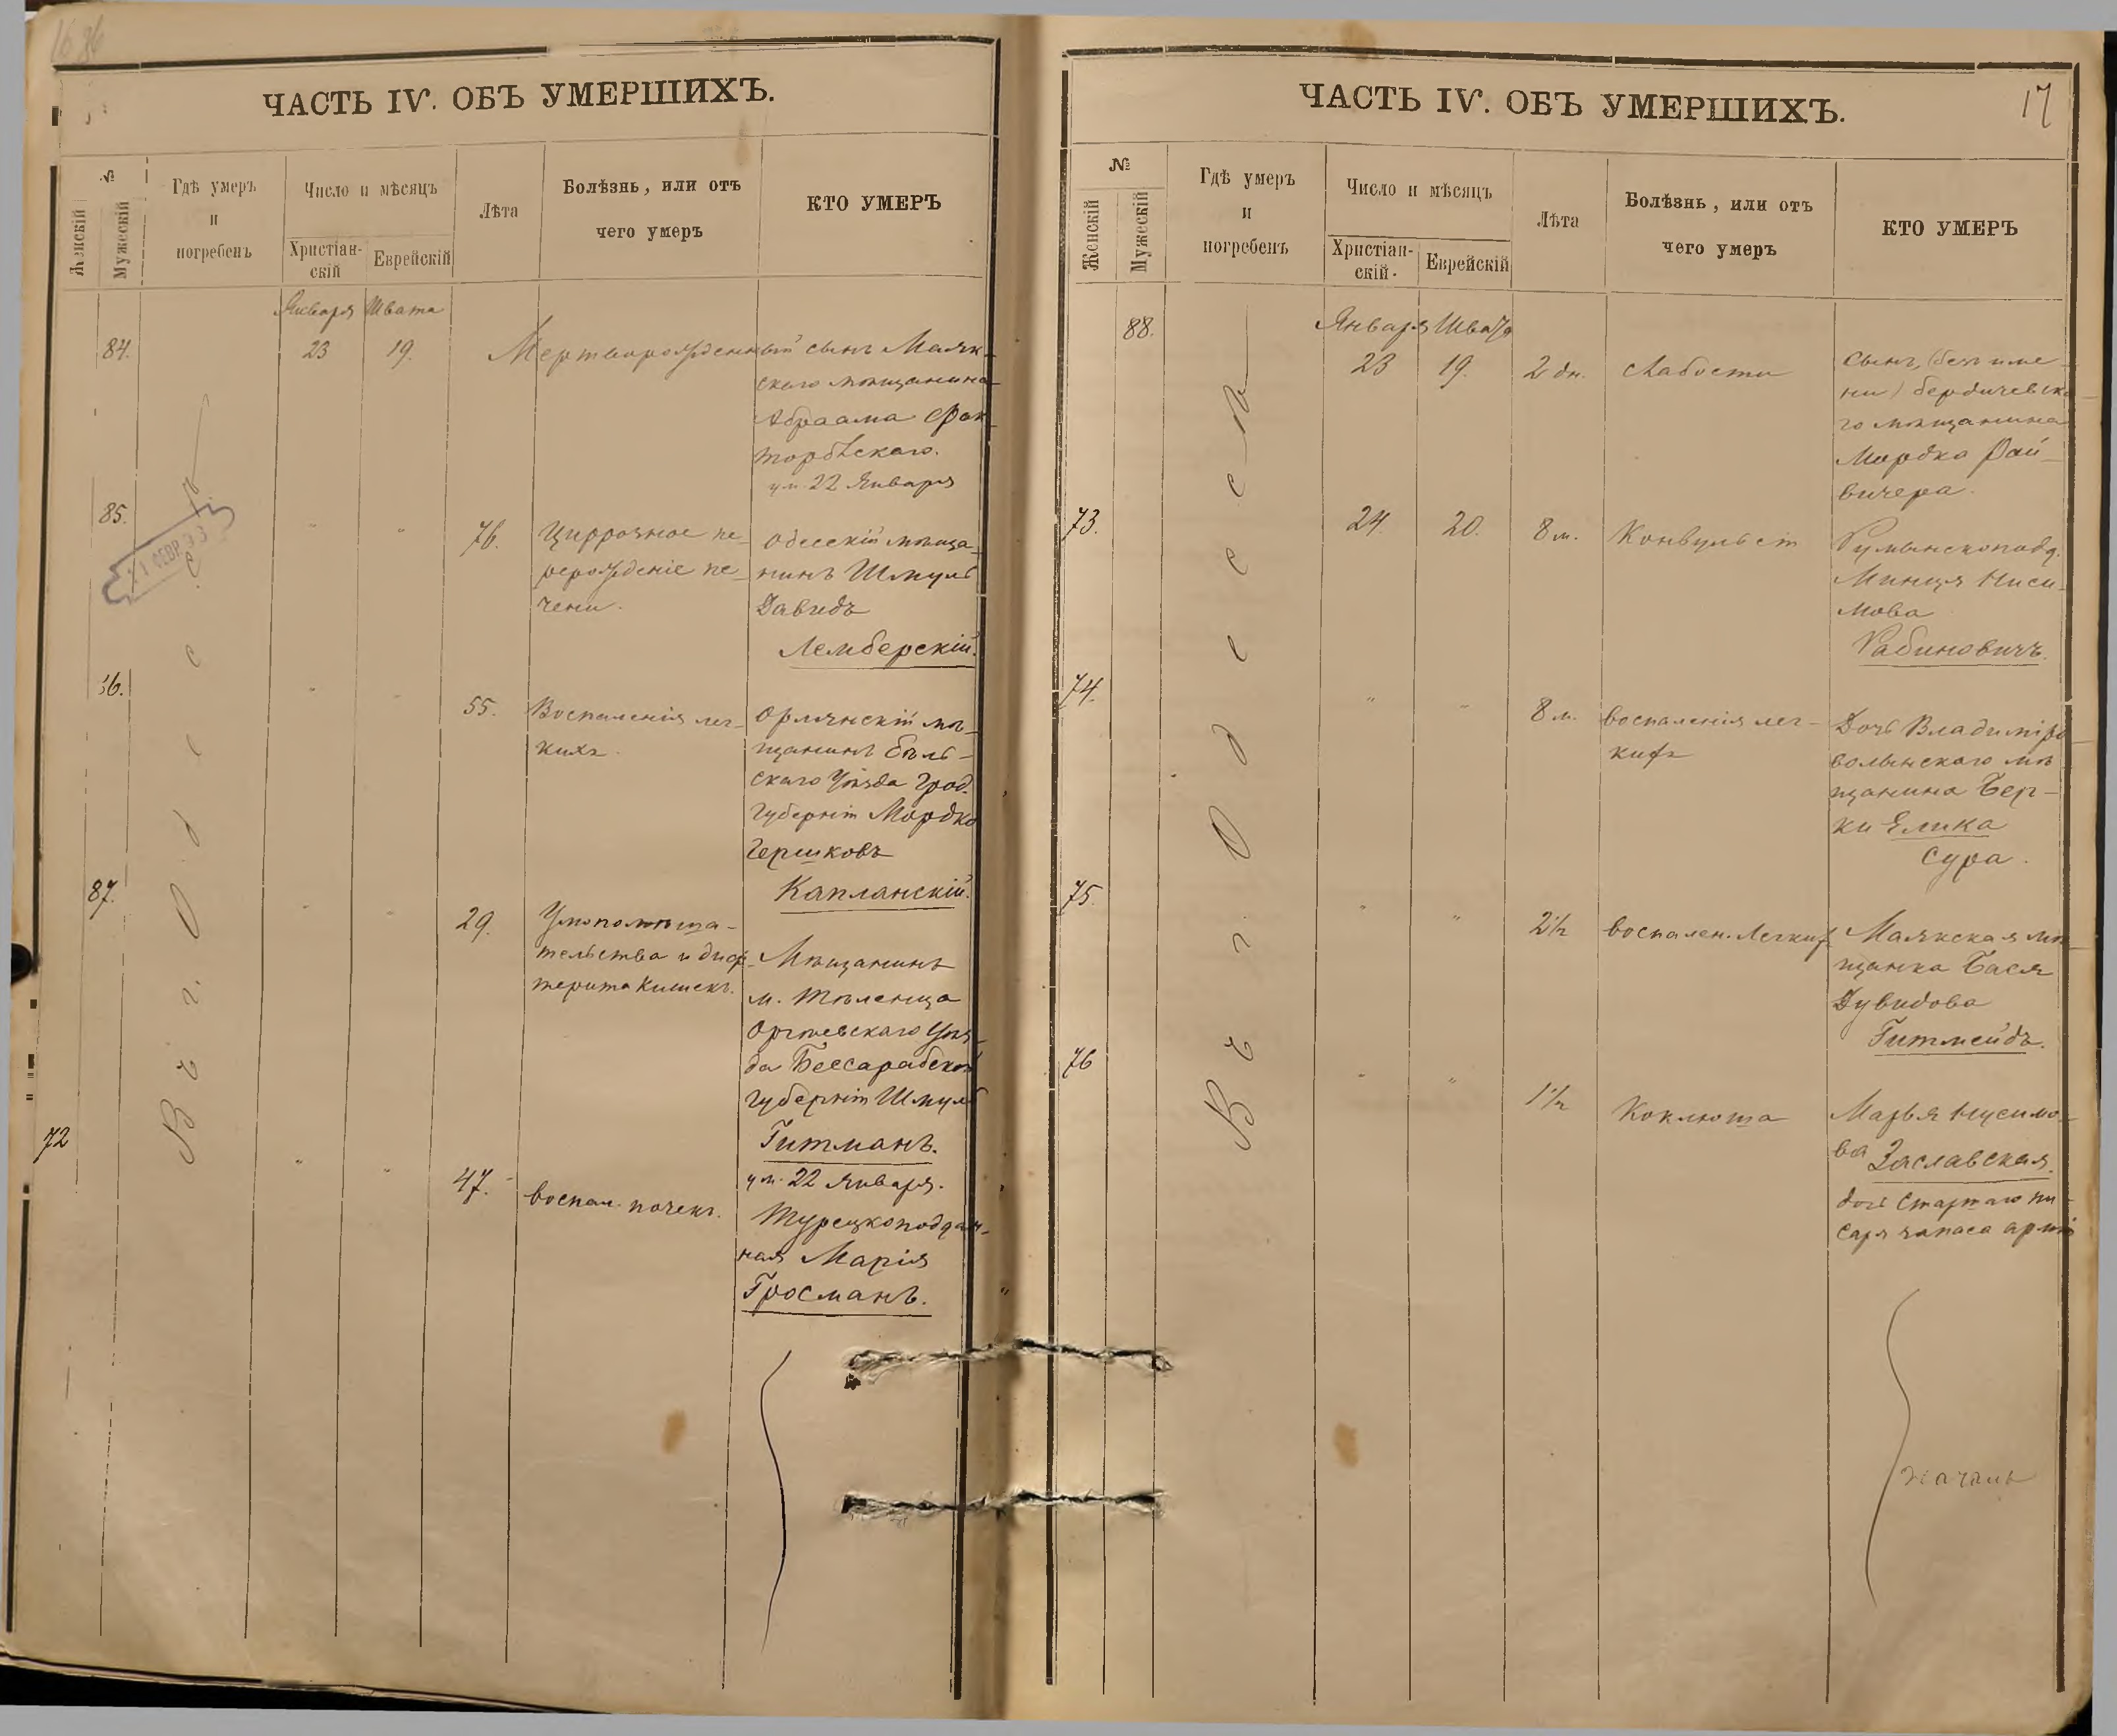 ЧАСТЬ IV. ОБЪ УМЕРШИХЪ.
№
Женскій
Мужескій
Гдѣ умеръ
и
погребенъ
Число и мѣсяцъ
Христіан-
скій
Еврейскій
Лѣта
Болѣзнь, или отъ
чего умеръ
КТО УМЕРЪ
Января Швата
84. 23 19. Мертворожденный сынъ Маяк-
скаго мѣщанина
Абраама Фак-
торовскаго.
ум. 22 Января
85. " " 76. Циррозное пе-
рерожденіе пе-
чени.
Одесскій мѣща-
нинъ Шмуль
Давидъ
Лемберскій.
86. " " 55. Воспаленія лег-
кихъ.
Орлянскій мѣ-
щанинъ Бѣль-
скаго Уѣзда Грод.
Губерніи Мордко
Гершковъ
Капланскій.
87. " " 29. Умопомѣша-
тельства и диф-
терита Кишекъ.
Мѣщанинъ
м. Теленеща
Оргѣевскаго Уѣз-
да Бессарабской
губерніи Шмуль
Гитманъ.
ум. 22 Января.
72 " " 47. воспал. почекъ.
Турецкоподдан-
ная Марія
Гросманъ.
Въ г. Одессѣ
ЧАСТЬ IV. ОБЪ УМЕРШИХЪ.
17
№
Женскій
Мужескій
Гдѣ умеръ
и
погребенъ
Число и мѣсяцъ
Христіан-
скій.
Еврейскій
Лѣта
Болѣзнь, или отъ
чего умеръ
КТО УМЕРЪ
Января Швата
88. 23 19. 2 дн. Слабости
Сынъ, (безъ име-
ни) бердичевска-
го мѣщанина
Мордко Рай-
вичера.
73. 24. 20. 8 м. Конвульсіи
Румынскопод.
Минця Ниси-
мова
Рабиновичъ.
74. " " 8 м. воспаленія лег-
кихъ
Дочь Владиміро
волынскаго мѣ
щанина Бер-
ки Елика
Сура.
75. " " 2½ воспален. Легкихъ
Маякская мѣ-
щанка Бася
Дувидова
Гитмейдъ.
76 " " 1½ Коклюша
Марья Нусимо-
ва Заславская.
дочь Старшаго пи-
саря запаса арміи
Въ г. Одесса